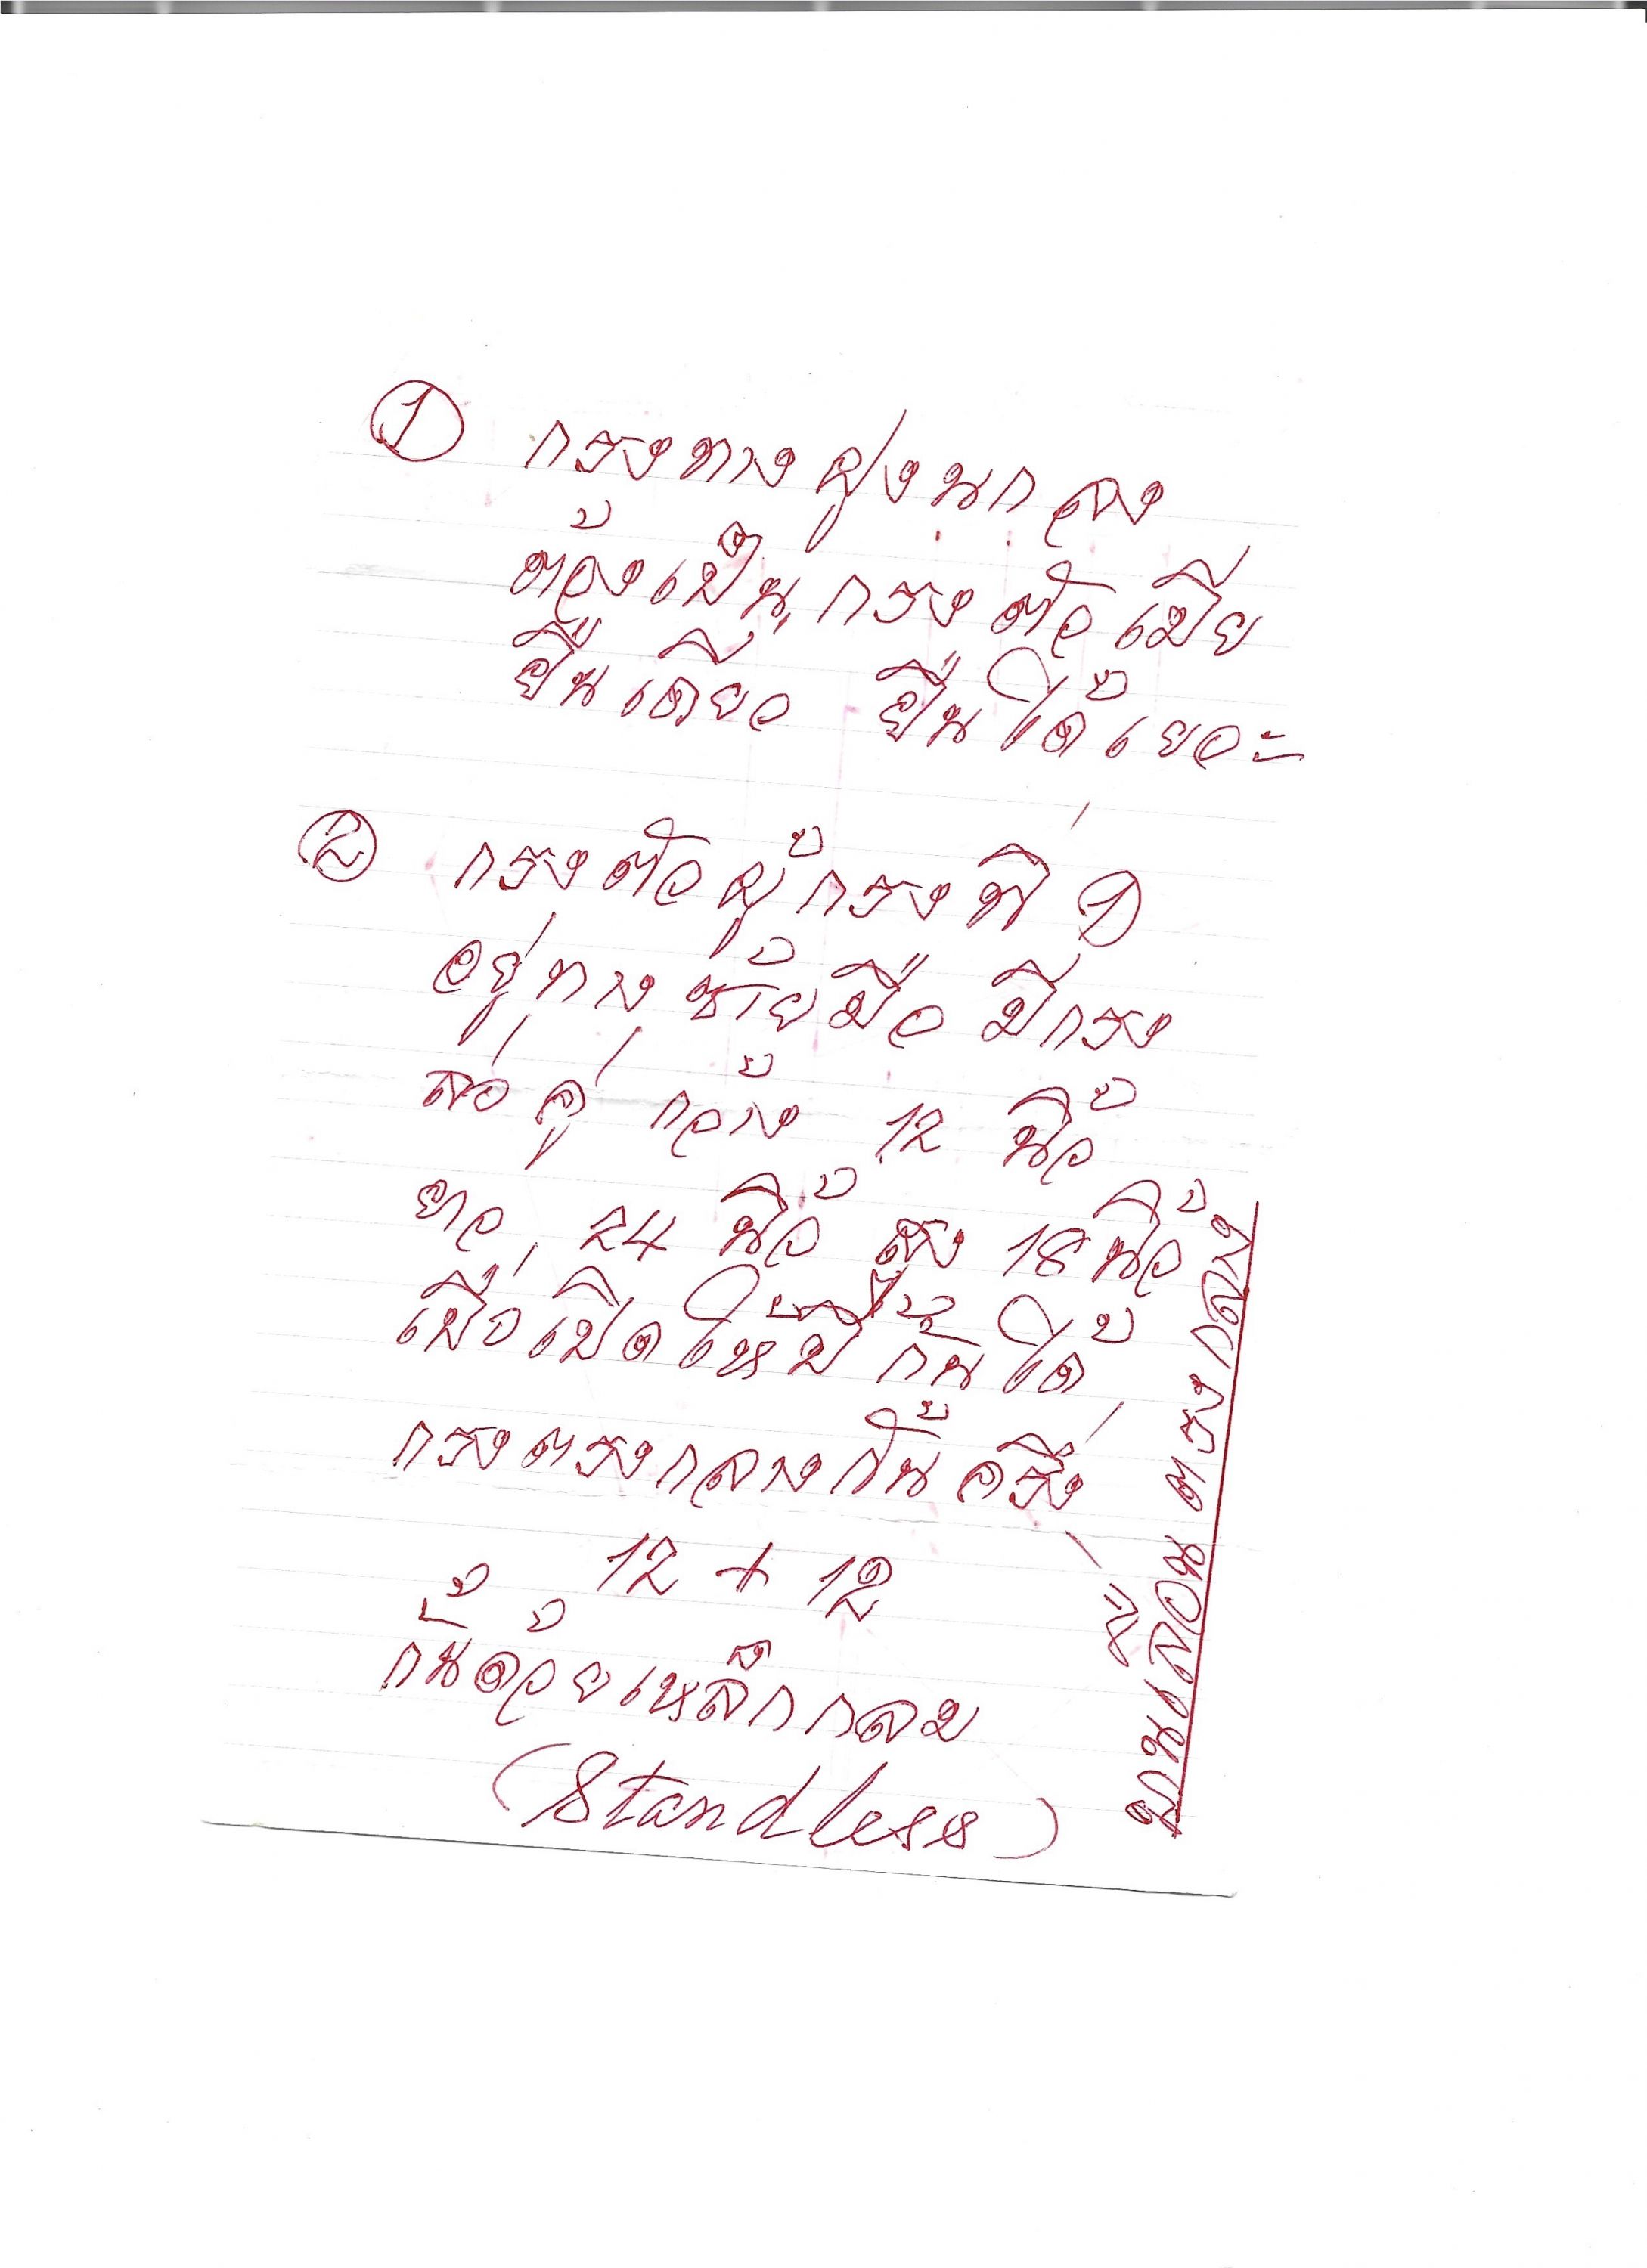 ① กรงทางฝูงนกลง
ต้องเป็นกรงตัวเมีย
ยืนเดียว ยืนได้เยอะ
② กรงตัวผู้กรงที่ ①
อยู่ทางซ้ายมือ มีกรง
ล่อคู่ กว้าง 12 นิ้ว
ยาว 24 นิ้ว สูง 18 นิ้ว
เมื่อเปิดให้มีที่กั้นได้
กรงตรงกลางกั้นครึ่ง
12 + 12
กั้นด้วยเหล็กกลม
(Standless)
ตรงกลาง